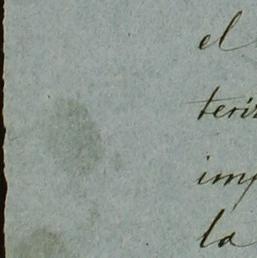 el
teriz
imp
la